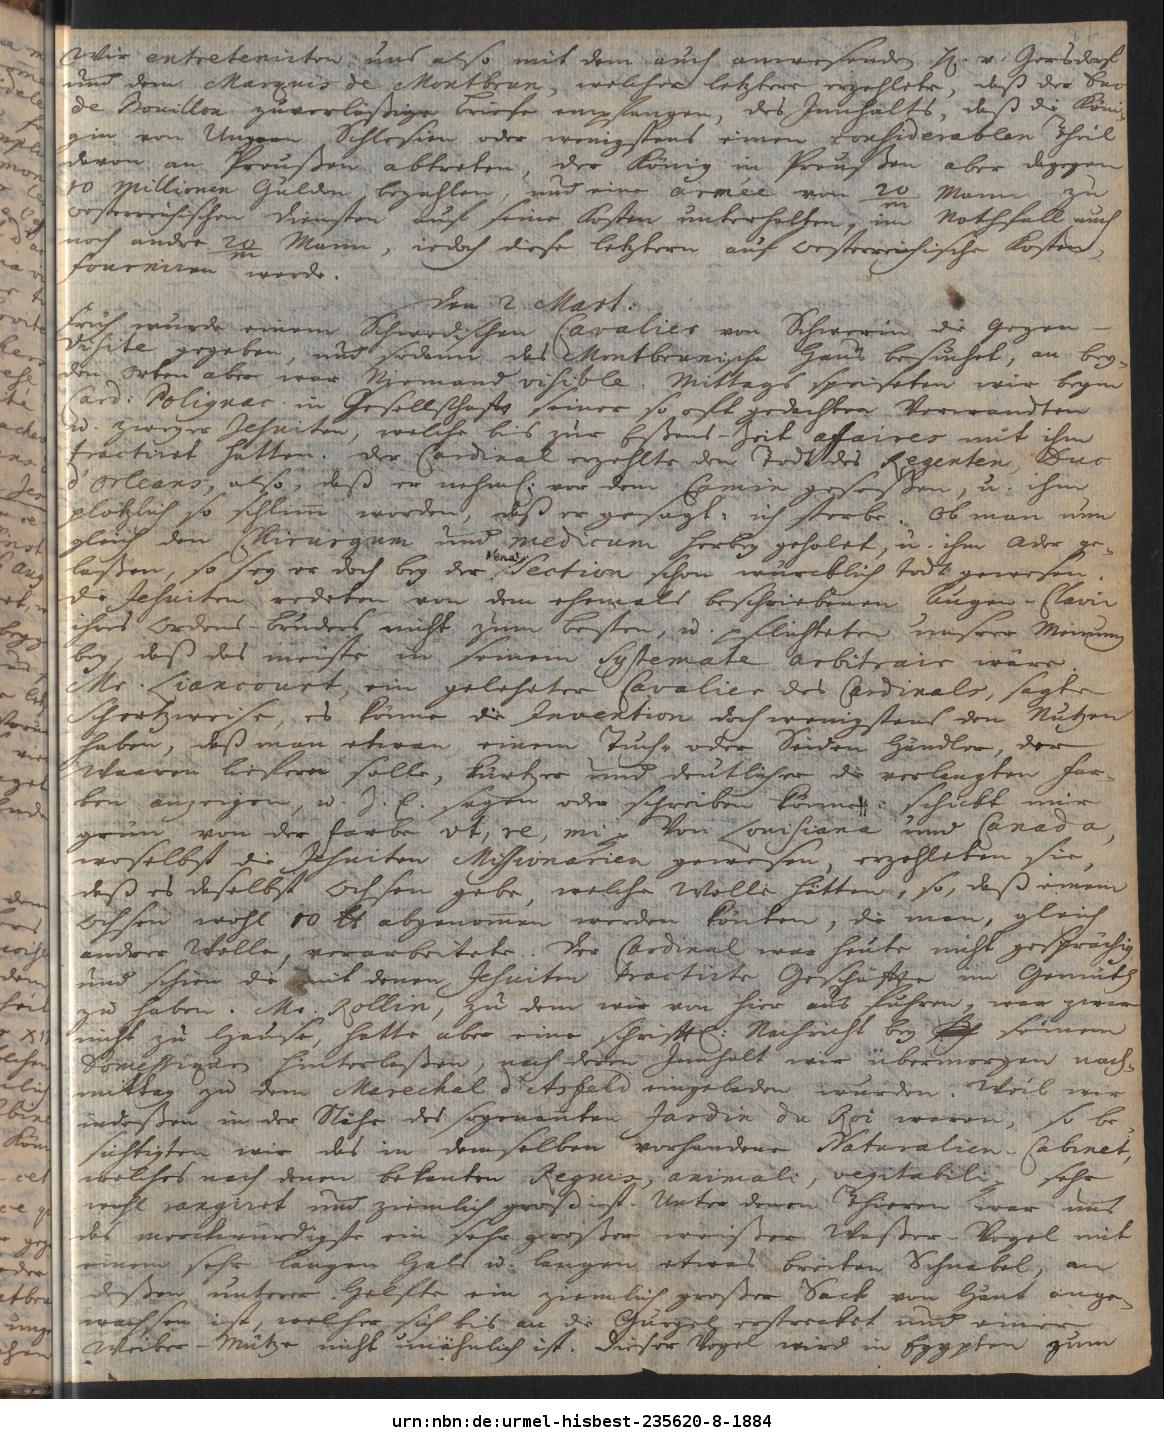 Wir entretenirten uns also mit dem auch anwesenden H. v. Gersdorf
und dem Marquis de Montbrun, welcher letztere erzehlete, daß der Duc
de Bouillon zuverläßige briefe empfangen, des Innhalts, daß die Köni-
gin von Ungarn Schlesien oder wenigstens einen considerablen Theil
davon an Preußen abtreten, der König in Preußen aber dagegen
10 Millionen Gulden bezahlen, und eine armee von 20/m Mann zu
oesterreichischen Diensten auf seine Kosten unterhalten, im Nothfall auch
noch andre 20/m Mann, iedoch diese letztern auf oesterreichische Kosten,
fourniren werde.
den 2 Mart:
Früh wurde einem Schwedischen Cavalier von Schwerin die Gegen-
Visite gegeben, und sodann das Montbrunische Haus besuchet, an bey-
den Orten aber war Niemand visible. Mittags speiseten wir beym
Card: Polignac in Gesellschafft seiner so oft gedachten Verwandten
u. zweyer Jesuiten, welche bis zur Eßens-Zeit affaires mit ihm
tractiret hatten. Der Cardinal erzehlte den Todt des Regenten, Duc
d'Orleans, also, daß er nehml: vor dem Camin geseßen, u. ihm
plötzlich so schlimm worden, daß er gesagt: ich sterbe. Ob man nun
gleich den Chirurgum und medicum herbey geholet, u. ihm Ader ge-
laßen, so sey er doch bey der Venae Section schon würcklich todt gewesen.
Die Jesuiten redeten von dem ehemals beschriebenen Augen-Clavir
ihres Ordens-bruders nicht zum besten, u. pflichteten unsrer Meinung
bey, daß das meiste in seinem Systemate arbitrair wäre.
Mr. Liancourt, ein gelehrter Cavalier des Cardinals, sagte
schertzweise, es könne die Invention doch wenigstens den Nutzen
haben, daß man etwan einem Tuch- oder Seiden Händler, der
Waaren liefern solle, kürtzer und deutlicher die verlangten Far-
ben anzeigen, u. Z. E. sagen oder schreiben könne: schickt mir
grün von der farbe ut, re, mi. Von Louisiana und Canada,
woselbst die Jesuiten Missionarien gewesen, erzehleten sie,
daß es daselbst Ochsen gebe, welche Wolle hätten, so, daß einem
Ochsen wohl 10 ℔ abgenommen werden könten, die man, gleich
andrer Wolle, verarbeitete. Der Cardinal war heute nicht gesprächig
und schien die mit denen Jesuiten tractirte Geschäffte im Gemüth
zu haben. Mr. Rollin, zu dem wir von hier aus fuhren, war zwar
nicht zu Hause, hatte aber eine schriftl: Nachricht bey seinem
Domestiquen hinterlaßen, nach deren Innhalt wir übermorgen nach-
mittag zu dem Marechal d'Asfeld eingeladen wurden. Weil wir
indeßen in der Nähe des sogenanten Jardin du Roi waren, so be-
sichtigten wir das in demselben vorhandene Naturalien-Cabinet,
welches nach denen bekanten Regnis, animali, vegitabili, sehr
wohl rangiret und ziemlich groß ist. Unter denen Thieren war uns
das merckwürdigste ein sehr großer weißer Waßer-Vogel mit
einem sehr langen Hals u. langen etwas breiten Schnabel, an
deßen unterer Helfte ein ziemlich großer Sack von Haut ange-
wachsen ist, welcher sich bis an die Gurgel erstrecket und einer
Weiber-Mütze nicht unähnlich ist. Dieser Vogel wird in Egypten zum
urn:nbn:de:urmel-hisbest-235620-8-1884